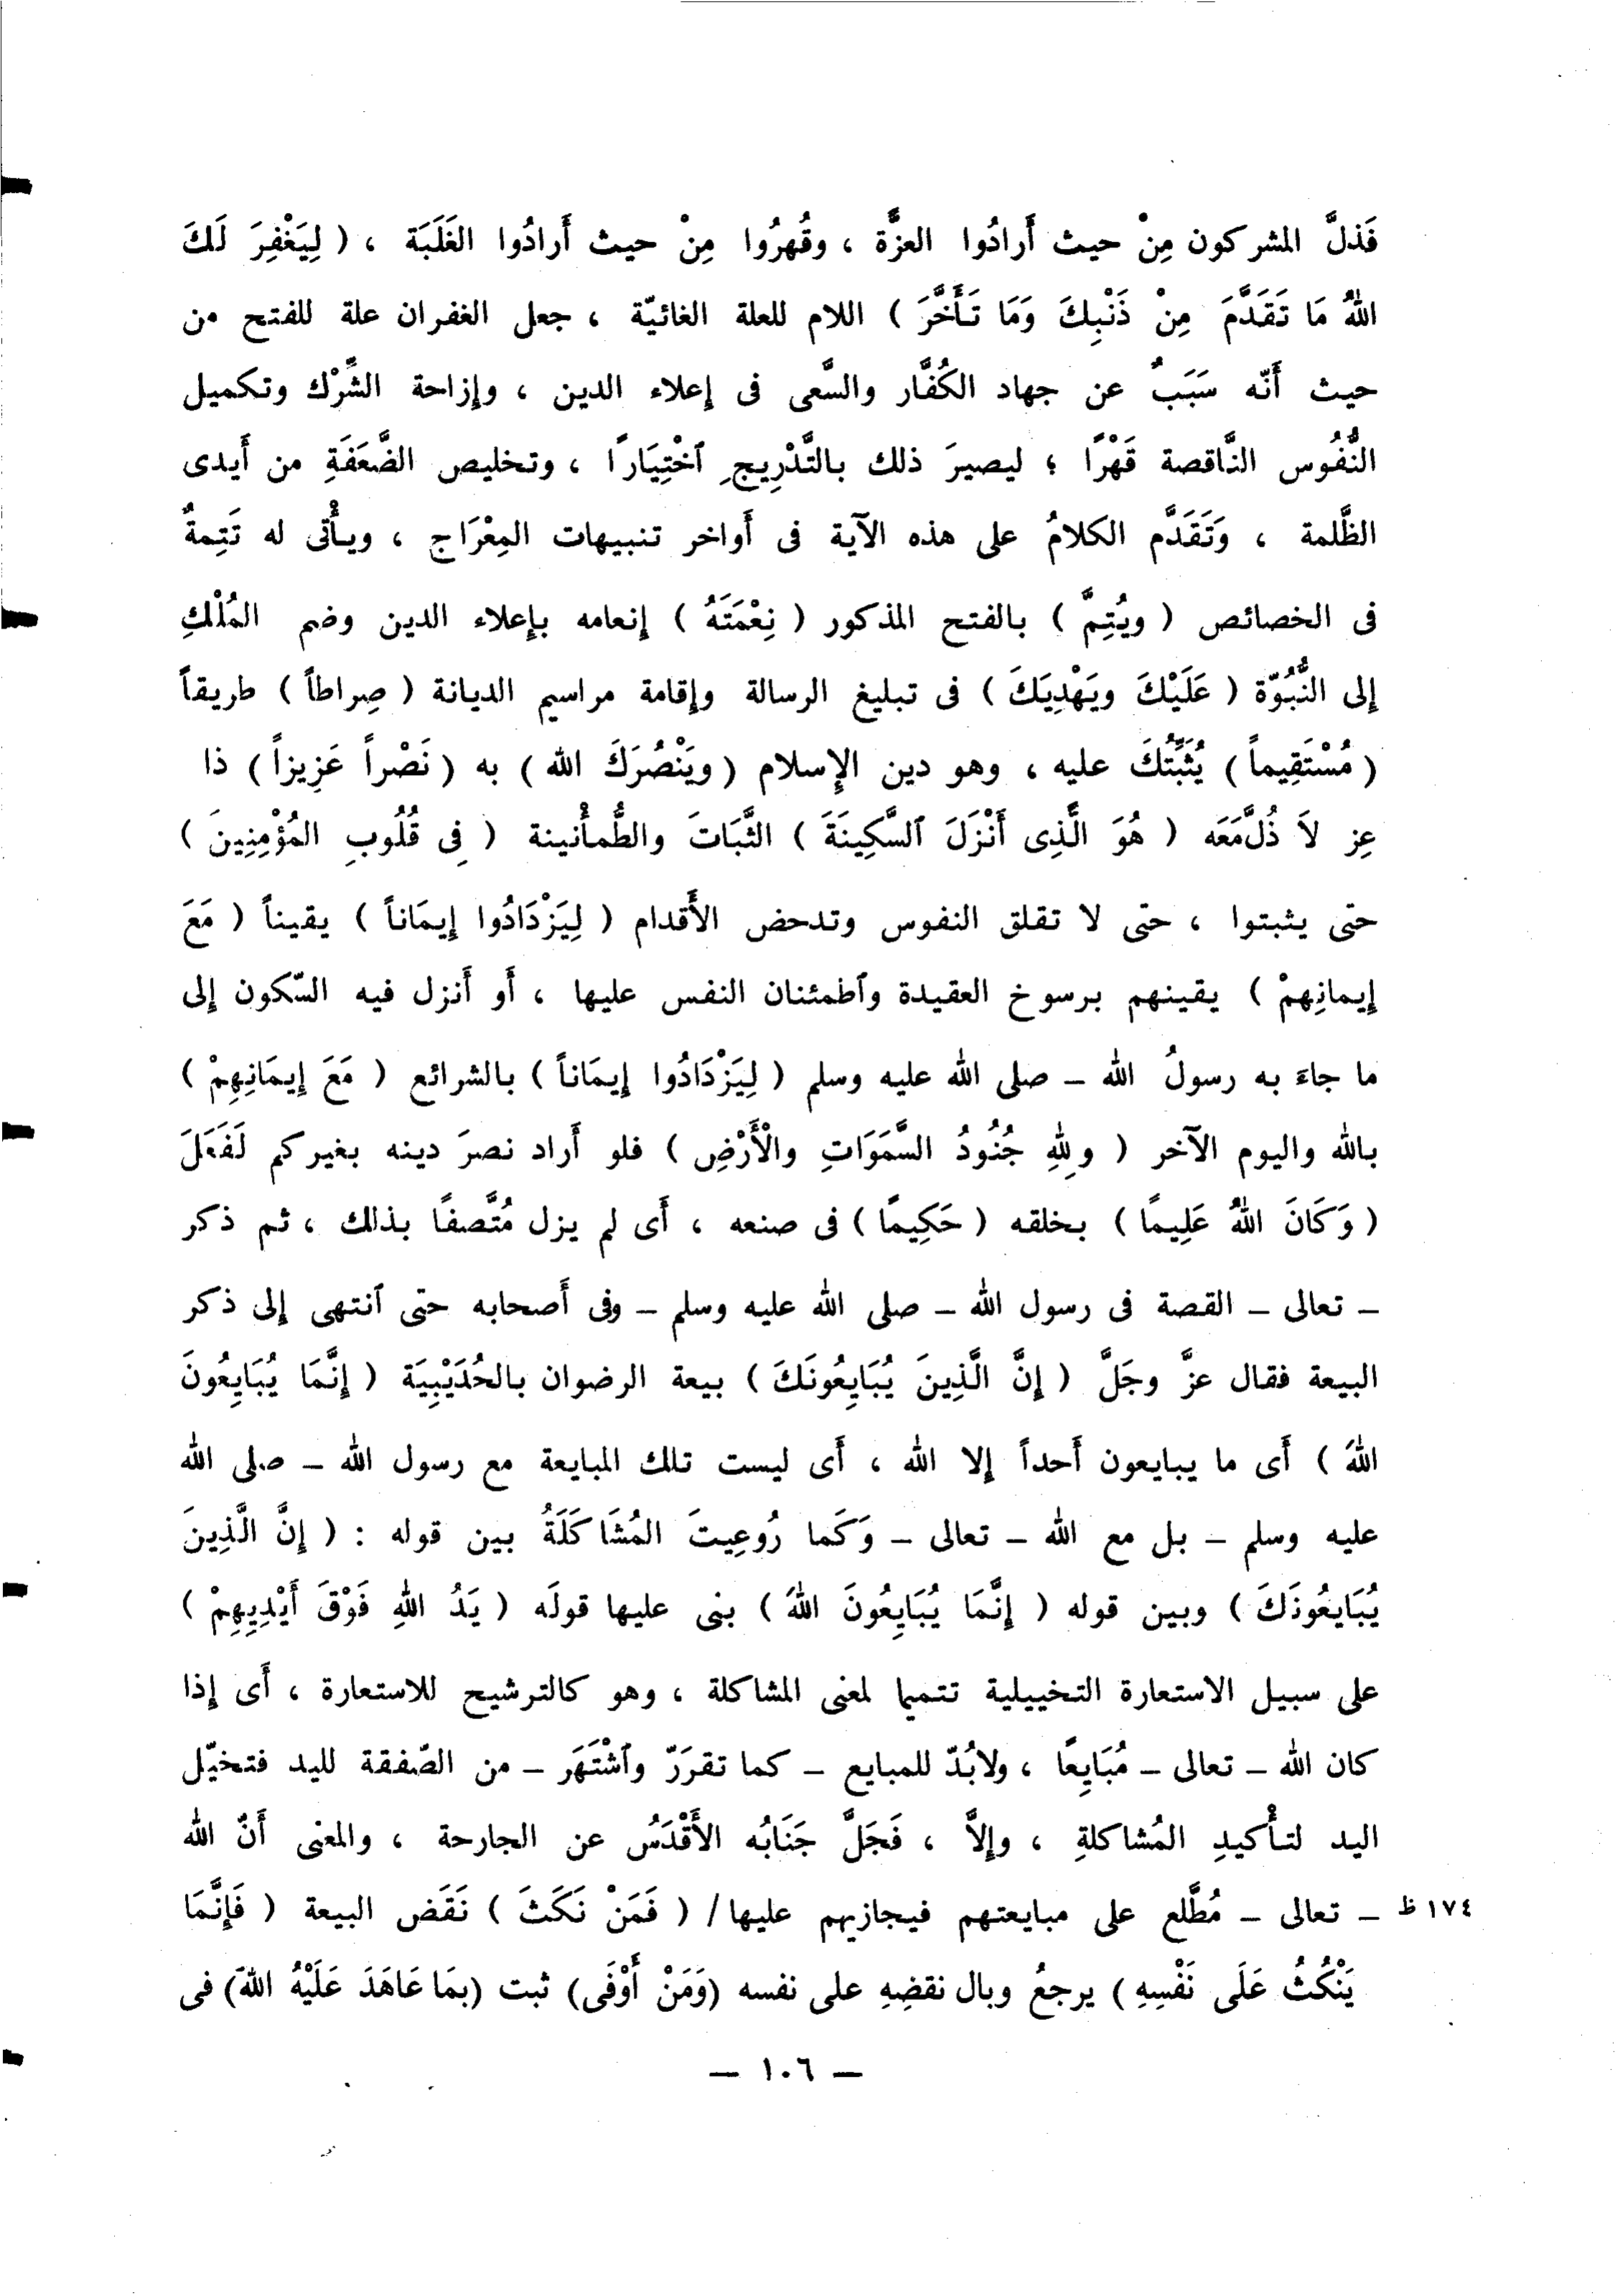 فَذلَّ المشركون مِنْ حيث أَرادُوا العزَّة ، وقُهرُوا مِنْ حيث أَرادُوا الغَلَبَة ، ( لِيَغْفِرَ لَكَ
اللهُ مَا تَقَدَّمَ مِنْ ذَنْبِكَ وَمَا تَأَخَّرَ ) اللام للعلة الغائيّة ، جعل الغفران علة للفتح من
حيث أَنّه سَبَبٌ عن جهاد الكُفَّار والسَّعى فى إعلاء الدين ، وإزاحة الشَّرْك وتكميل
النُّفُوس النَّاقصة قَهْرًا ؛ ليصيرَ ذلك بالتَّدْرِيجِ ٱخْتِيَارًا ، وتخليص الضَّعَفَةِ من أَيدى
الظَّلمة ، وَتَقَدَّم الكلامُ على هذه الآية فى أَواخر تنبيهات المِعْرَاج ، ويأْتى له تَتِمةٌ
فى الخصائص ( ويُتِمَّ ) بالفتح المذكور ( نِعْمَتَهُ ) إنعامه بإعلاء الدين وضم المُلْكِ
إلى النُّبُوّة ( عَلَيْكَ ويَهْدِيَكَ ) فى تبليغ الرسالة وإقامة مراسيم الديانة ( صِراطاً ) طريقاً
( مُسْتَقِيماً ) يُثَبِّتُكَ عليه ، وهو دين الإسلام ( ويَنْصُرَكَ الله ) به ( نَصْراً عَزِيزاً ) ذا
عِز لاَ ذُلَّ مَعَه ( هُوَ الَّذِى أَنْزَلَ ٱلسَّكِينَةَ ) الثَّبَاتَ والطُّمأْنينة ( فِى قُلُوبِ المُؤْمِنِينَ )
حتى يثبتوا ، حتى لا تقلق النفوس وتدحض الأَقدام ( لِيَزْدَادُوا إِيمَاناً ) يقيناً ( مَعَ
إِيمانِهمْ ) يقينهم برسوخ العقيدة وٱطمئنان النفس عليها ، أَو أَنزل فيه السّكون إلى
ما جاءَ به رسولُ الله – صلى الله عليه وسلم ( لِيَزْدَادُوا إِيمَاناً ) بالشرائع ( مَعَ إِيمَانِهِمْ )
بالله واليوم الآخر ( وللهِ جُنُودُ السَّمَوَاتِ والْأَرْضِ ) فلو أَراد نصرَ دينه بغيركم لَفَعَلَ
( وَكَانَ اللهُ عَلِيمًا ) بخلقه ( حَكِيمًا ) فى صنعه ، أَى لم يزل مُتَّصفًا بذلك ، ثم ذكر
– تعالى – القصة فى رسول الله – صلى الله عليه وسلم – وفى أَصحابه حتى ٱنتهى إلى ذكر
البيعة فقال عزَّ وجَلَّ ( إِنَّ الَّذِينَ يُبَايِعُونَكَ ) بيعة الرضوان بالحُدَيْبِيَة ( إِنَّمَا يُبَايِعُونَ
اللهَ ) أَى ما يبايعون أَحداً إلا الله ، أَى ليست تلك المبايعة مع رسول الله – صلى الله
عليه وسلم – بل مع الله – تعالى – وَكَما رُوعِيتَ المُشَاكَلَةُ بين قوله : ( إِنَّ الَّذِينَ
يُبَايعُونَكَ ) وبين قوله ( إِنَّمَا يُبَايِعُونَ اللهَ ) بنى عليها قولَه ( يَدُ اللهِ فَوْقَ أَيْدِيِهِمْ )
على سبيل الاستعارة التخييلية تتميا لمعنى المشاكلة ، وهو كالترشيح للاستعارة ، أَى إذا
كان الله – تعالى – مُبَايِعًا ، ولابُدّ للمبايع – كما تقرَرّ وٱشْتَهَر – من الصّفقة لليد فتخيّل
اليد لتأْكيدِ المُشاكلةِ ، وإلاَّ ، فَجَلَّ جَنَابُه الأَقْدَسُ عن الجارحة ، والمعنى أَنّ الله
– تعالى – مُطَّلع على مبايعتهم فيجازيهم عليها / ( فَمَنْ نَكَثَ ) نَقَض البيعة ( فَإِنَّمَا ١٧٤ ظ
يَنْكُثُ عَلَى نَفْسِهِ ) يرجعُ وبال نقضِهِ على نفسه (وَمَنْ أَوْفَى) ثبت (بمَا عَاهَدَ عَلَيْهُ اللهَ) فى
– ١٠٦ –